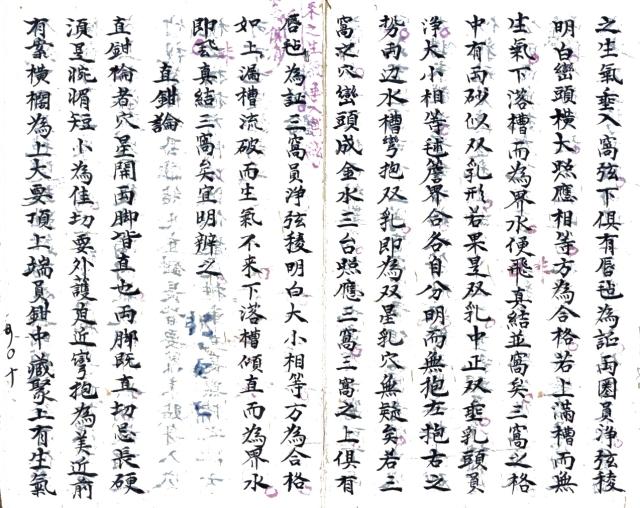 之生氣垂入窩弦下俱有唇毡為証兩圈員淨弦稜
明白巒頭橫大照應相等方為合格若上滿槽而無
生氣下落槽而為界水便飛真結並窩矣三窩之格
中有兩砂似双乳形若果是双乳中正双垂乳頭員
淨大小相等毬簷界合各自分明而無抱左抱右之
势两边水槽彎抱双乳即為双星乳穴無疑矣若三
窩之穴巒頭成金水三台照應三窩三窩之上俱有
唇毡為証三窩員淨弦稜明白大小相等方為合格
如上滿槽流破而生氣不来下落槽傾直而為界水
即飛真結三窩矣宜明辨之
直鉗論
直鉗格者穴星開両脚皆直也両脚既直切忌長硬
須是婉媚短小為佳切要外護直近彎抱為美近前
有案橫欄為上大要頂上端員鉗中藏聚上有生氣